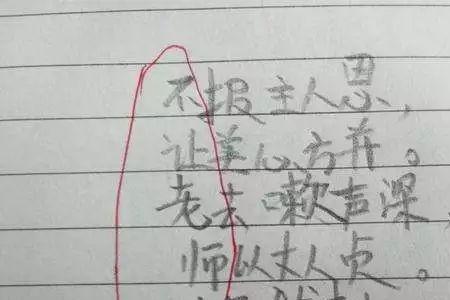 不报主人恩,
让美心方弃。
老去嗽声深,
师以丈人贞。